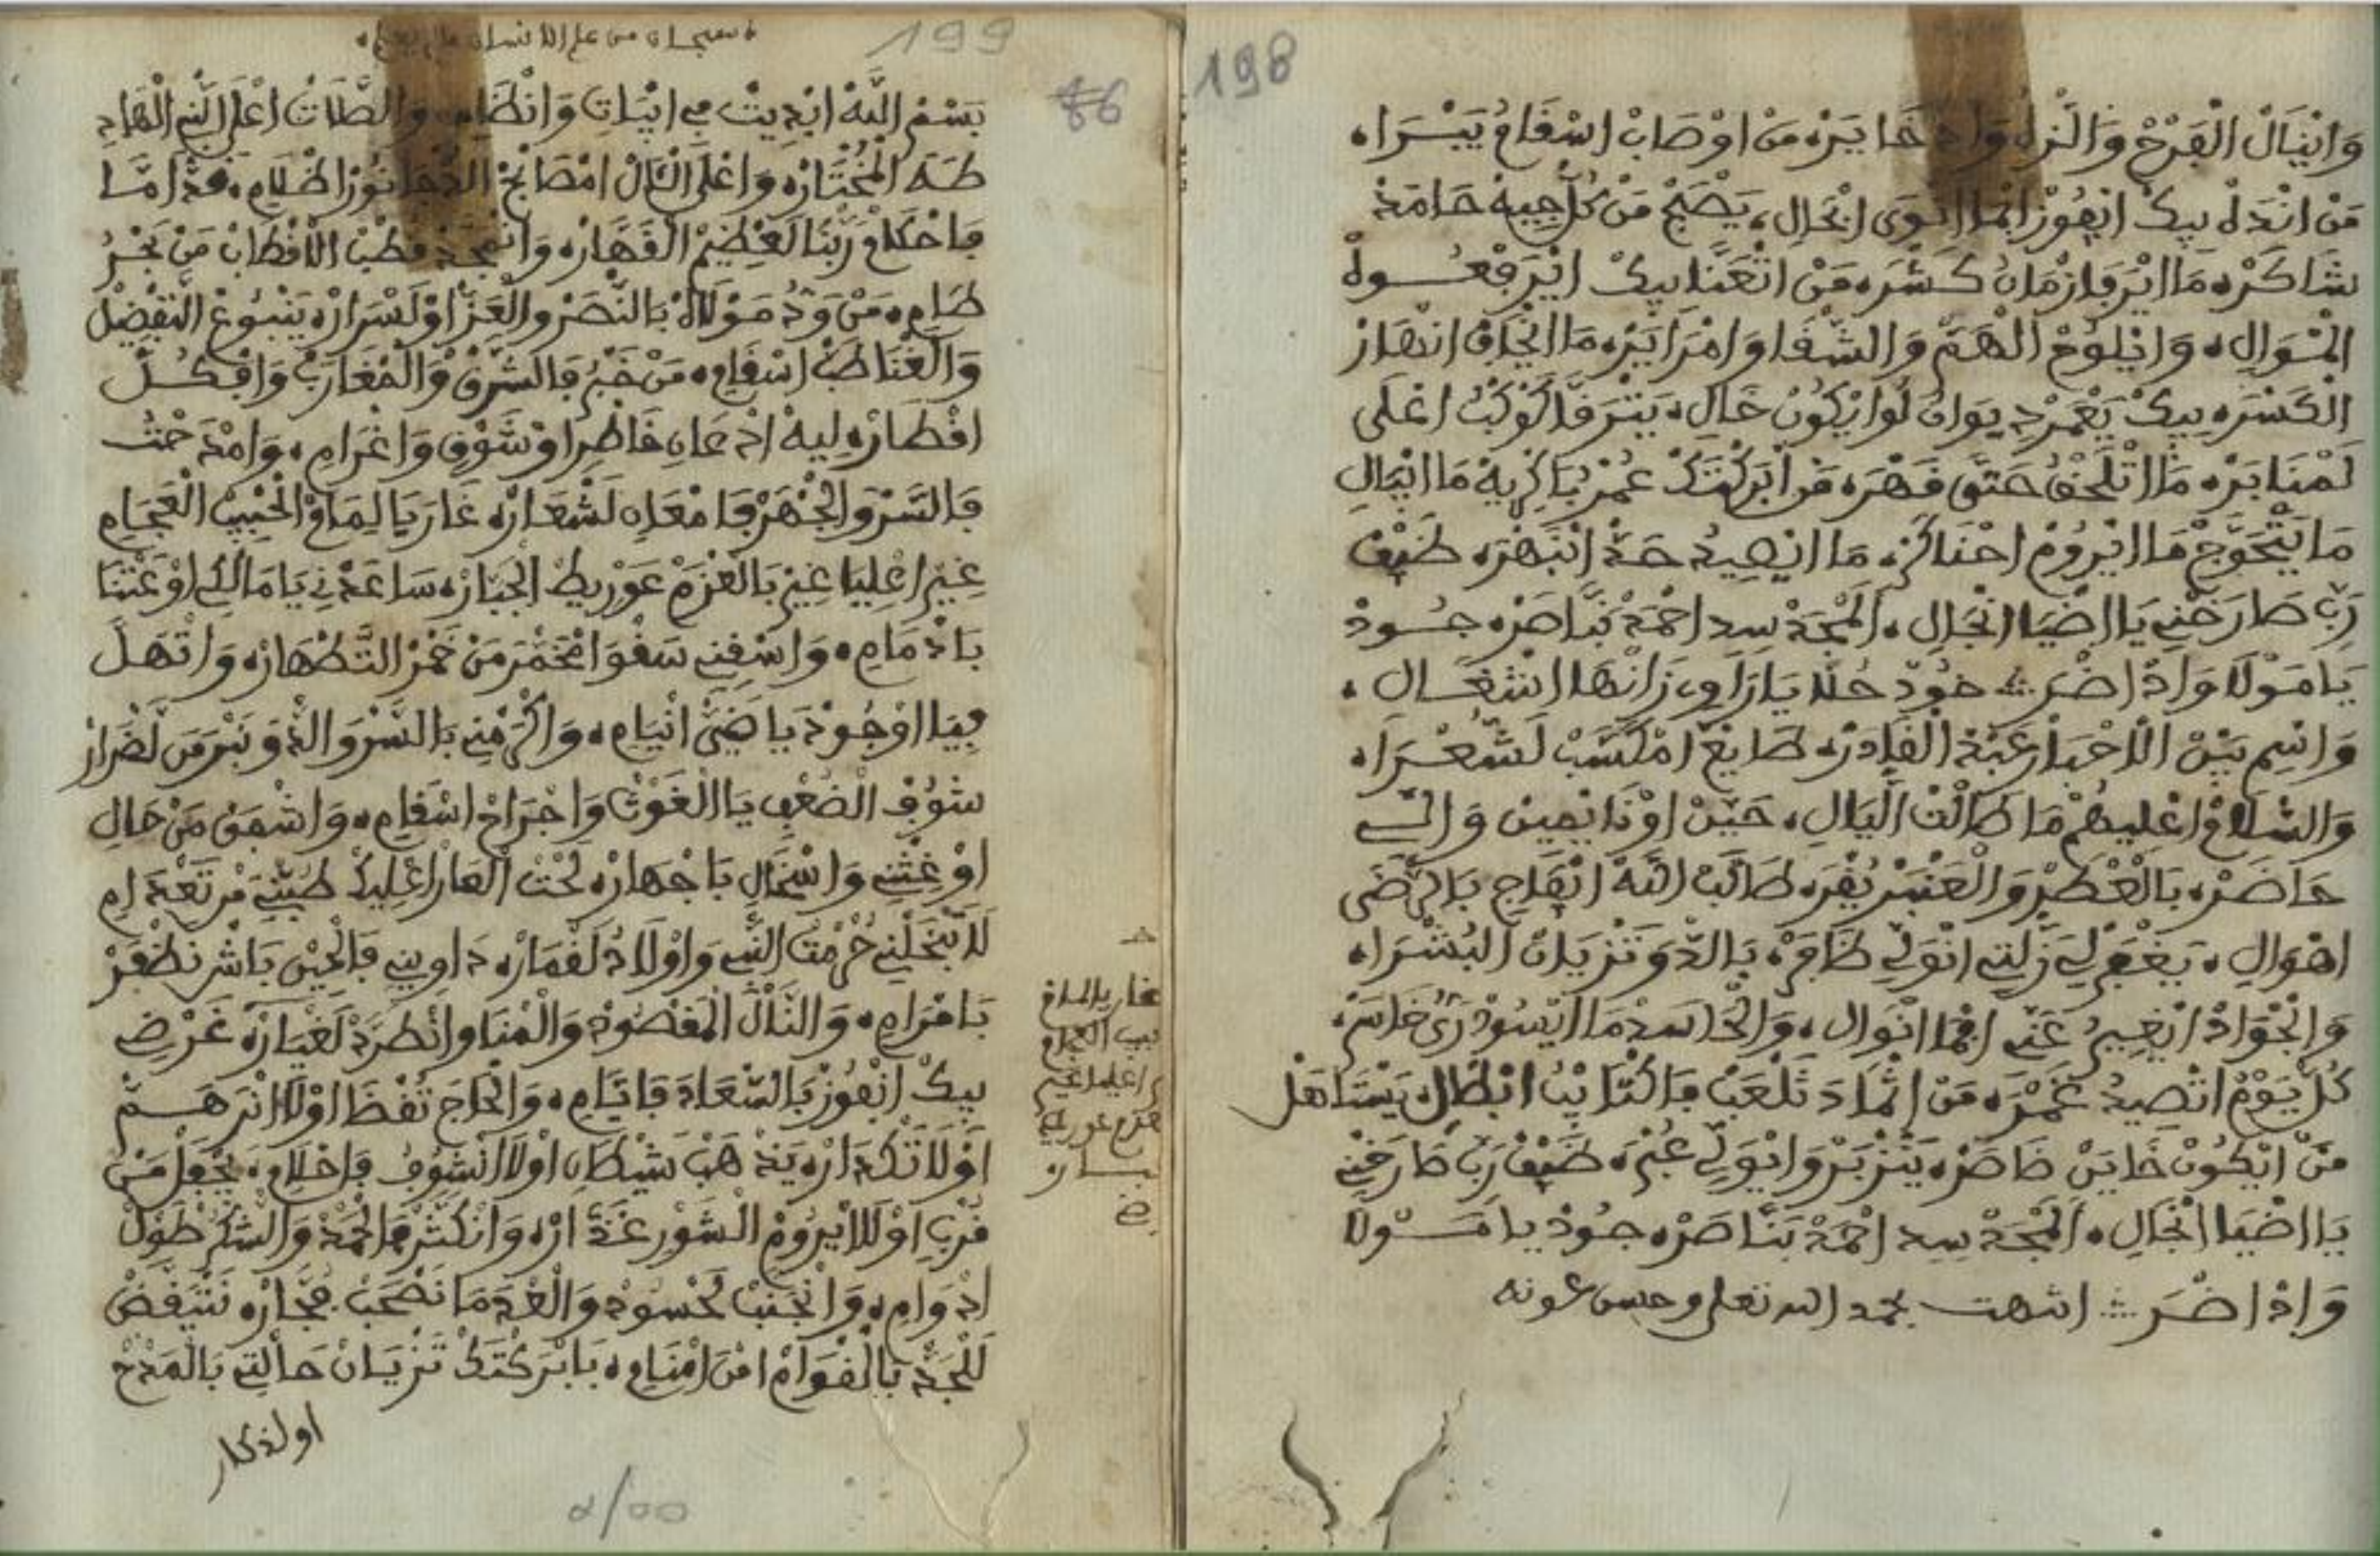 198
وَانْيَالْ الْفَرْحْ وَالنَّزِهْ خَايَرْه مَنْ اوْصَابْ اسْقَامُ يَبْرَاه
مَنْ انْدَهْ بِيكْ ايْفُوزْ انْوَى انْجَالِ، يَصْبَحْ مَنْ كُلّْ جِيهْ حَامَدْ
شَاكَرْه مَا ايْرَ فَازْمَانُ كَسْرَه مَنْ اتْعَنَّا بِيكْ ايْرَفْعُوهْ
الْمْوَالِ، وَايْلُوحْ الْهَمّْ وَالشّْقَا وَامْرَايَرْه مَا ايْخَافْ انْهَارْ
الْكَسْرَه بِيكْ يَعْمَرْ دِيوَانُ لَوْ ايْكُونْ خَالِ، يَتْرَقَّى كَوْكْبُ اعْلَى
لَمْنَابَرْه مَا اتْلَحْقُ حَتَّى قَهْرَه مَنْ ابْرَكْتَكْ عُمْرْ بَاكْرِيهْ مَا ايْبَالِ
مَا يَتْحَوَّجْ مَا ايْرُومْ احْنَاكَرْه مَا ايْصِيدُ حَدّْ انْبَهْرَه ضَيْفْ
رَبّْ طَارَحْنِي يَا اضْيَا انْجَالِ، الْمَجَدْ سِيدِ احْمَدْ بَنَّاصَرْه جُودْ
يَا مَوْلَا وَادْ اضْرَ ؞ خُودْ حُلَّا يَا رَاوِي زَانْهَا اشْغَالِ،
وَاسْمِ بَيْنْ الْاحْبَارْ عَبْدْ الْقَادَرْه طَايَعْ امْكَسَّبْ لَشُّعْرَاه
وَالسّْلَامْ اعْلِيهُمْ مَا طَالْتْ الّْيَالِ، حَيّْنْ اوْنَايْمِينْ وَالِّي
حَاضَرْه بَالْعْطَرْ وَالْعَنْبَرْ يُقْرَه طَالَبْ اللَّهْ انْفَاجِي بَالرّْضَى
اهْوَالِ، يَغْفَرْ لِي زَلْتِي انْوَلِّي ظَافَرْه بَالدَّوَ تَزْيَانْ الْبُشْرَاه
وَالْجْوَادْ انْغِيبُ عَنِّي افْمَا انْوَالِ، وَالْحَاسَدْ مَا ايْسُودْ رَىُ خَاسَرْه
كُلّْ يَوْمْ اتْصِيدُ غَمْرَه مَنْ اتْمَادَ تَلْعَبْ فَاكْتَايْبُ ابْطَالِ، يَسْتَاهَلْ
مَنّْ ايْكُونْ خَايَنْ خَاصَرْه يَتْزَبَّرْ وَايْوَلِّي عُبْرَه ضَيْفْ رَبّْ طَارَحْنِي
يَا اضْيَا انْجَالِ، الْمَجَدْ سِيدِ احْمَدْ بَنَّاصَرْه جُودْ يَا مَوْلَا
وَادْ اضْرَ ؞ انتهت بحمد الله تعلى وحسن عونه
199
سبحان من علم الانسان ما لم يعلم
86
بَسْمْ اللَّهْ ابْدِيتْ فِي ابْيَاتِ وَانْظَامِ، وَالصَّلَاتْ اعْلَى النّْبِي الْهَادِ
طَهَ الْمُخْتَارْه وَاعْلَى الْآلْ امْصَابَحْ الدّْجَا نُورْ اظْلَامِ، هَدْ امَّا
فَاحْكَامْ رَبّْنَا لَعْظِيمْ الْقَهَّارْه وَانْمَجَّدْ قُطْبْ الْاقْطَابْ مَنْ بَحْرُ
طَامِ، مَنْ وَدُّ مَوْلَاهْ بَالنَّصَرْ وَالْعَزّْ اوْلَسْرَارْه يَنْبُوعْ التَّفْضِيلْ
وَالْغْنَا طَبّْ اسْقَامِ، مَنْ خَبْرُ فَالشَّرْقْ وَالْمْغَارَبْ وَافْكُلّْ
اقْطَارْه لِيهْ ادْعَانِ خَاطْرِ اوْشَوْقِ وَاغْرَامِ، وَامْدَحْتُ
فَالسَّرْ وَالْجْهَرْ فَامْعَانِ لَشْعَارْه غَارَ يَا لِمَامْ الْحْبِيبْ الْعَجْامِ
غِيرْ اعْلِيَّا غِيرْ بَالْعْزَمْ عَوْرِيطْ الْجْبَارْه سَاعَدْنِي يَا مَالْكِي اوْ عَتْنَا
بَادْمَامِ، وَاسْقِينِي سَقْوَ امْخَمَّرْ مَنْ خَمْرْ التَّطْهَارْه وَاتْهَلَّ
فِيَّا اوْجُودْ يَا ضَيّْ انْيَامِ، وَاكْرَمْنِي بَالسَّرْ وَالدَّوَ نَبْرَ مَنْ لَضْرَارْ
شُوفْ الضُّعْفِ يَا الْغَوْثْ وَاجْرَاحْ اسْقَامِ، وَاشْفَقْ مَنْ حَالِ
اوْغِثْنِي وَاسْخَالِ بَاجْهَارْه لُحْتْ الْعَارْ اعْلِيكْ طَبّْنِي مَنْ تَعْدَامِ
لَا تَبْخَلْنِي حُرْمْتْ النّْبِي وَاوْلَادُ لَقْمَارْه دَاوِينِي فَالْحِينْ بَاشْ نَظْفَرْ
بَامْرَامِ، وَالنَّالْ الْمَقْصُودْ وَالْمْنَا وَانْطَرَدْ لَغْيَارْه غَرْضِي
بِيكْ انْفُوزْ بَالسّْعَادَ فَايَّامِ، وَالْحَاجَ تُقْضَا اوْلَا انْرَ هَمّْ
اوْلَا تَكْدَارْه يَدْهَبْ شَيْطَانِ اوْلَا انْشُوفُ فَاحْلَامِ، يَجْفَلْ مَنْ
قُرْبِ اوْلَا ايْرُومْ الشُّورْ غَدَّارْه وَانْكَثَّرْ فَالْحَمْدْ وَالشُّكْرْ طُولْ
ادْوَامِ، وَانْجَنَّبْ لَحْسُودْ وَالْعْدَ مَا نَصْحَبْ فُجَّارْه نَتْيَقَّضْ
لَلْجَدّْ بَالْقْوَامْ امْنَ امْنَامِ، بَابْرَكْتَكْ تَزْيَانْ حَالْتِي بَالْمَدْحْ
اولذكار
غار يا لمام
بيب العجام
ر اعليا غير
عزم عوريط
بارہ